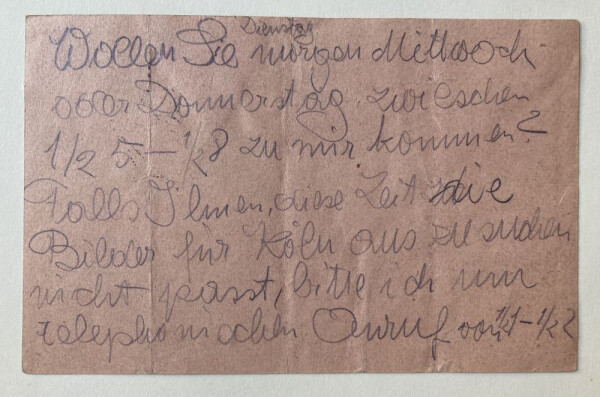 Dienstag
Wollen Sie morgen Mittwoch
oder Donnerstag zwischen
1/2 5 – 1/2 8 zu mir kommen?
Falls Ihnen, diese Zeit die
Bilder für Köln aus zu suchen
nicht passt, bitte ich um
telephonischen Anruf von 1/21–1/2 2